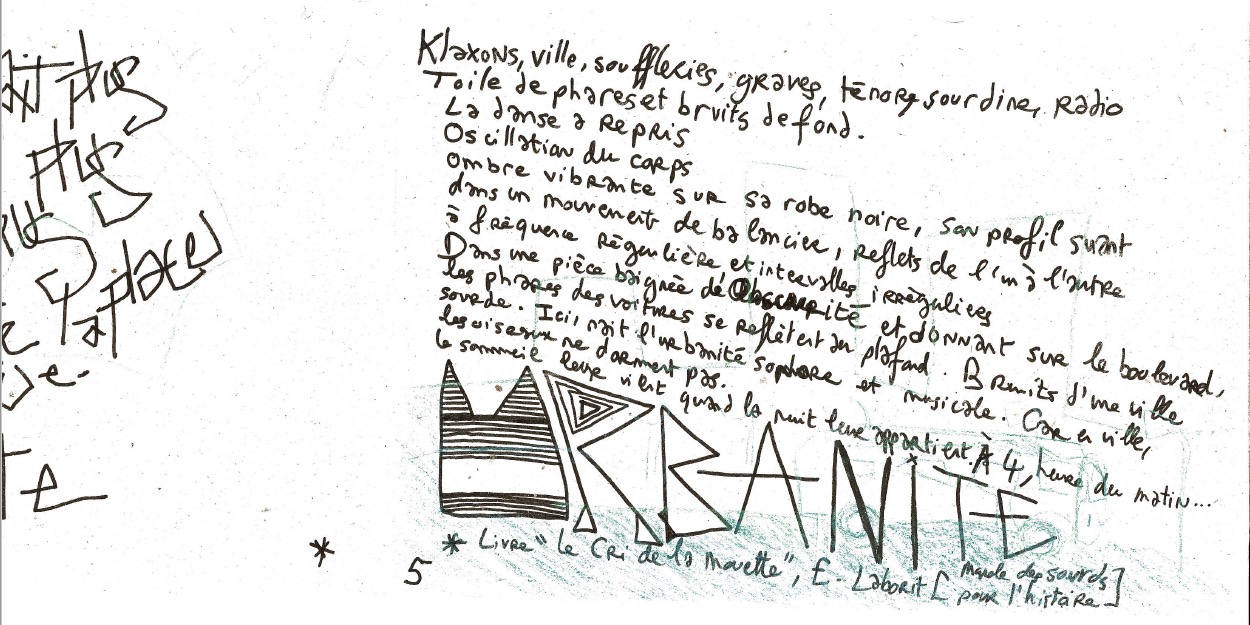 plus
plus
la place
e.
te
Klaxons, ville, souffleries, graves, ténors, sourdine, Radio
Toile de phares et bruits de fond.
La danse a repris
Oscillation du corps
Ombre vibrante sur sa robe noire, son profil suant
dans un mouvement de balancier, reflets de l'un à l'autre
à fréquence régulière et intervalles irréguliers
Dans une pièce baignée d'obscurité et donnant sur le boulevard,
les phrares des voitures se reflètent au plafond. Bruits d'une ville
sourde. Ici, nait l'urbanité sophore et musicale. Car en ville,
les oiseaux ne dorment pas.
le sommeil leur vient quand la nuit leur appartient. À 4, heure du matin...
URBANITE
* 5 * Livre "le Cri de la Mouette", E. Laborit [Monde des sourds
pour l'histoire]